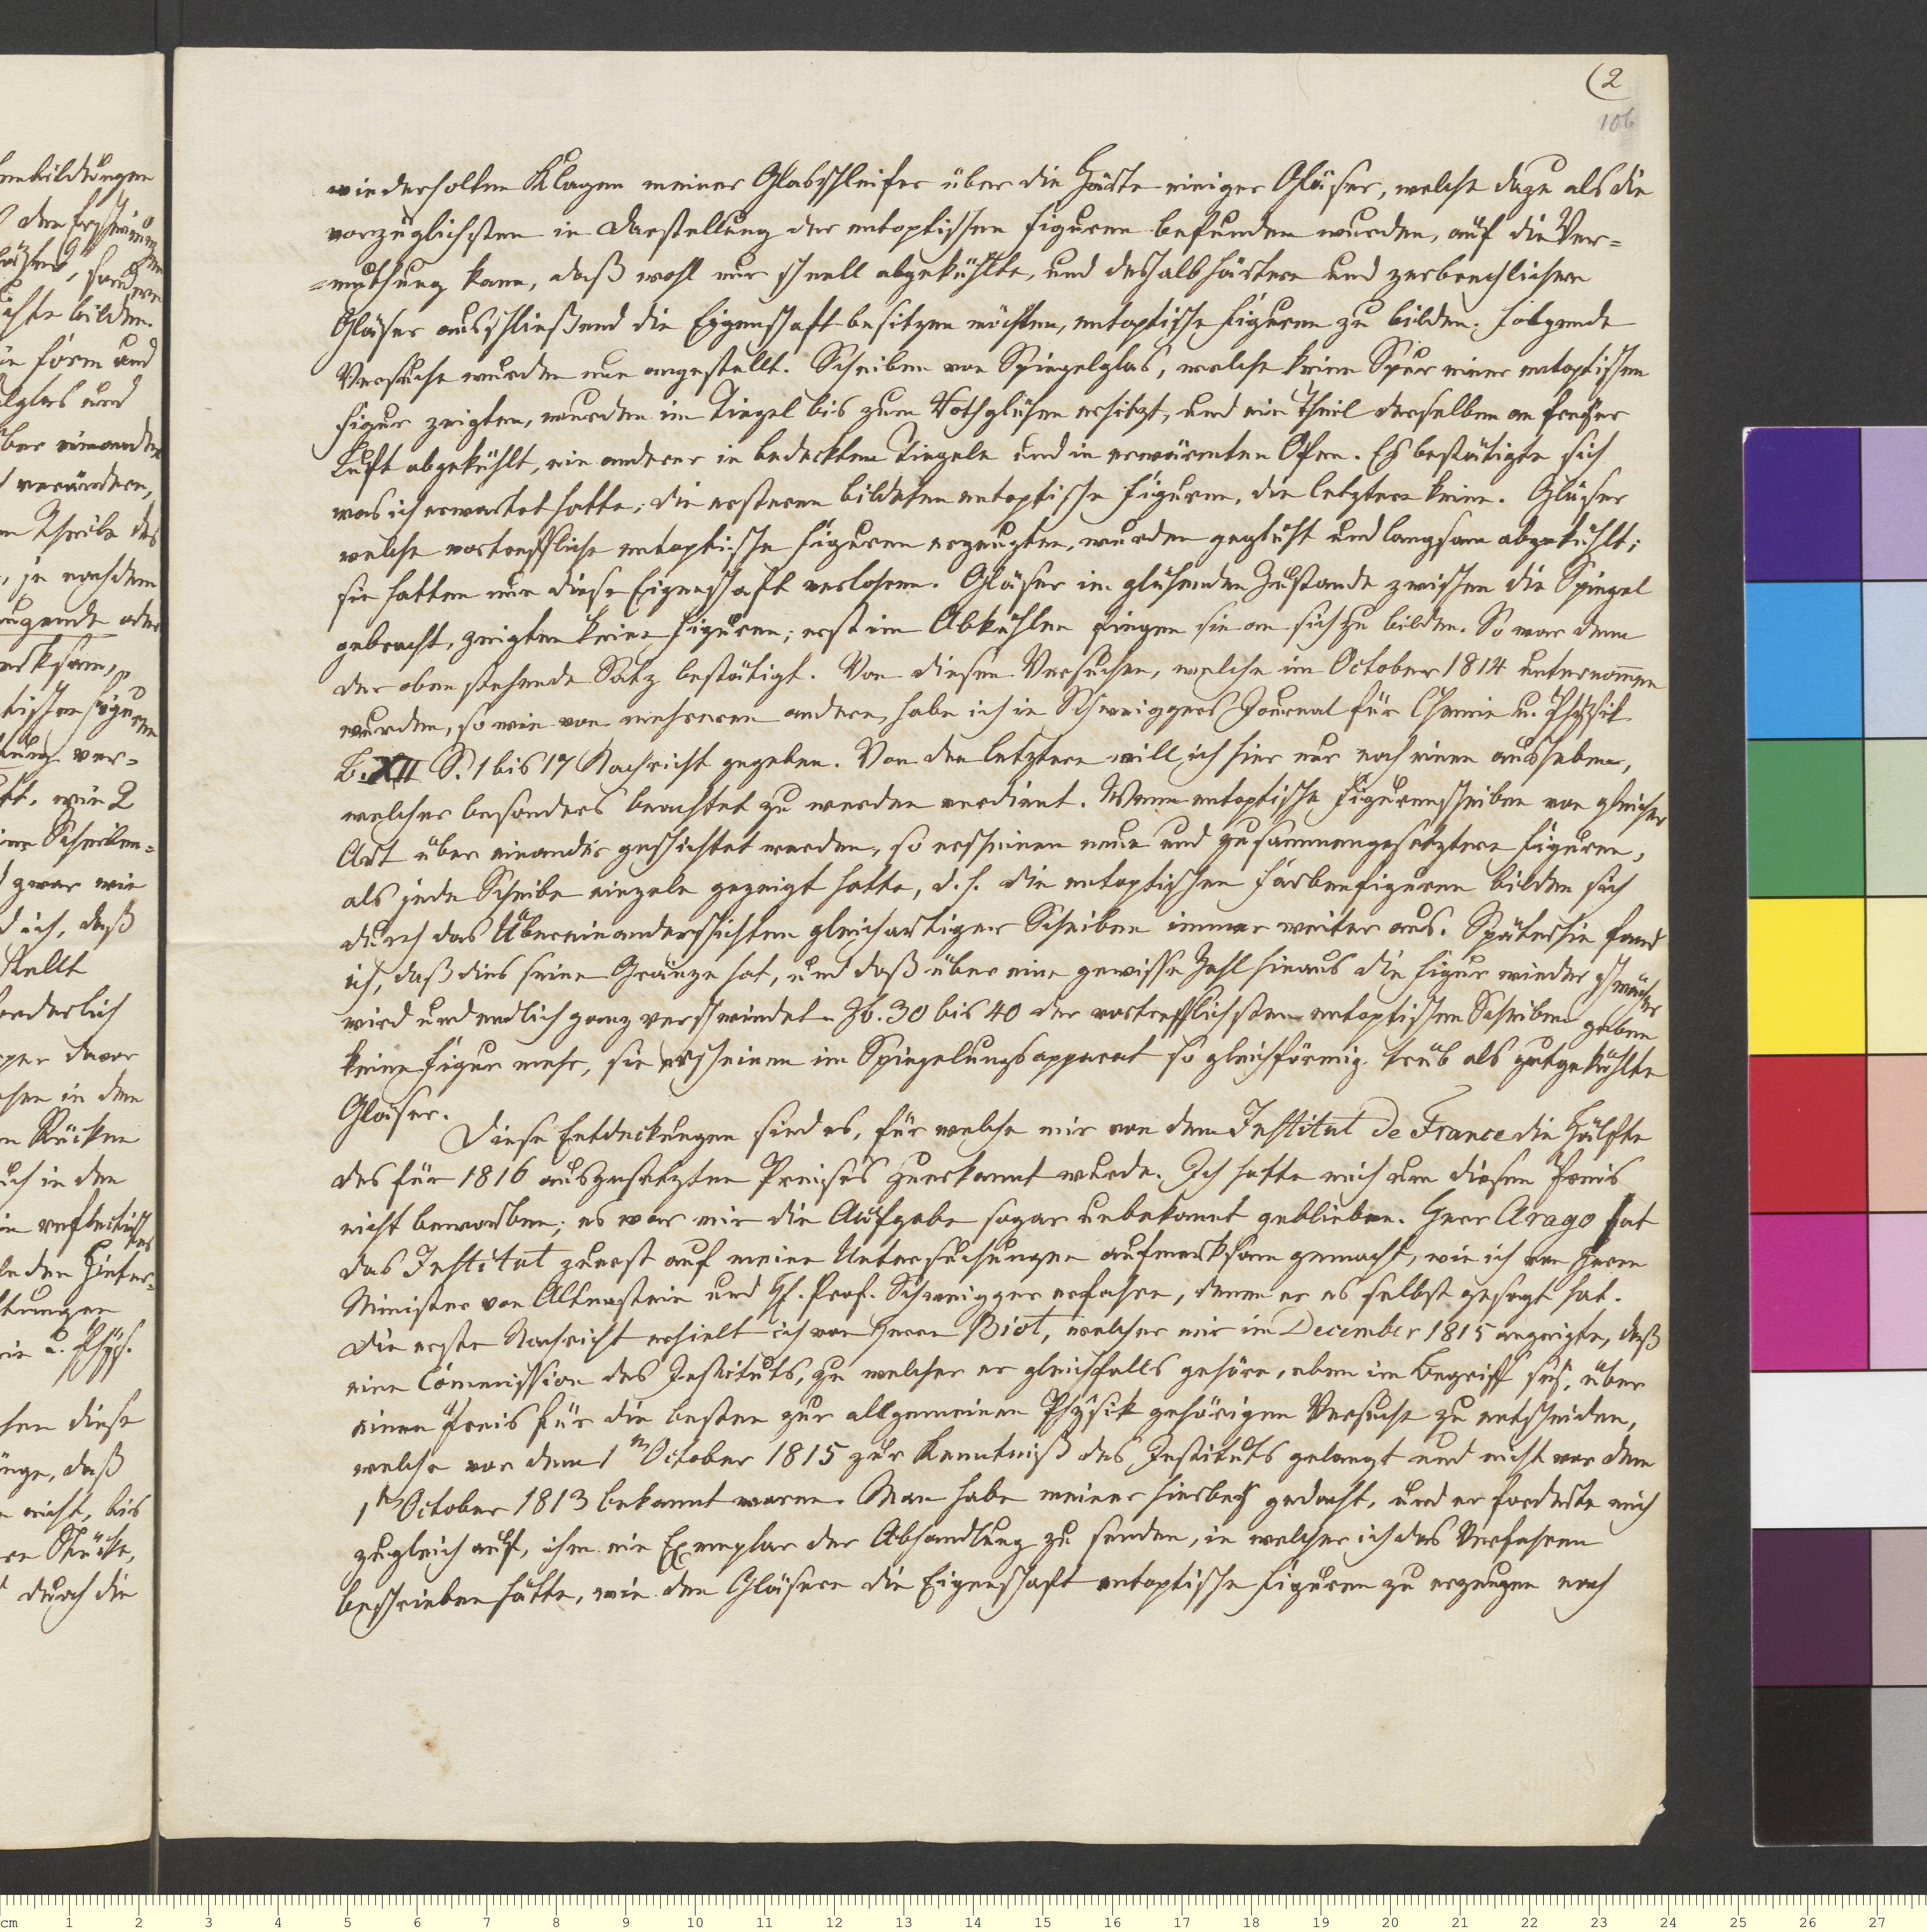 (2
106
wiederholten Klagen meiner Glasschleifer über die Härte einiger Gläser, welche dazu als die
vorzüglichsten in Darstellung der entoptischen Figuren befunden wurden, auf die Ver=
=muthung kam, daß wohl nur schnell abgekühlte, und deshalb härtere und zerbrechlichere
Gläser ausschließend die Eigenschaft besitzen möchten, entoptische Figuren zu bilden. Folgende
Versuche wurden nun angestellt. Scheiben von Spiegelglas, welche keine Spur einer entoptischen
Figur zeigten, wurden im Tiegel bis zum Rothglühen erhitzt, und ein Theil derselben an freyer
Luft abgekühlt, ein anderer in bedecktem Tiegeln und in erwärmten Ofen. Es bestätigte sich
was ich erwartet hatte; die ersteren bildeten entoptische Figuren, die letztern keine. Gläser
welche vortreffliche entoptische Figuren erzeugten, wurden geglüht und langsam abgekühlt;
sie hatten nun diese Eigenschaft verlohren. Gläser im glühenden Zustande zwischen die Spiegel
gebracht, zeigten keine Figuren; erst im Abkühlen fingen sie an sich zu bilden. So war denn
der oben stehende Satz bestätigt. Von diesen Versuchen, welche im October 1814 unternom̅en
wurden, so wie von mehreren andern, habe ich in Schweiggers Journal für Chemie u. Physik
B. XII S. 1 bis 17 Nachricht gegeben. Von den letztern will ich hier nur noch einen ausheben,
welcher besonders beachtet zu werden verdient. Wenn entoptische Figurenscheiben von gleicher
Art über einander geschichtet werden, so erscheinen neue und zusammengesetztere Figuren,
als jede Scheibe einzeln gezeigt hatte, d. h. die entoptischen Farbenfiguren bilden sich
durch das Übereinanderschichten gleichartiger Scheiben immer weiter aus. Späterhin fand
ich, daß dies seine Gränze hat, und daß über eine gewisse Zahl hinaus die Figur wieder schwächer
wird und endlich ganz verschwindet. Zb. 30 bis 40 der vortrefflichsten entoptischen Scheiben geben
keine Figur mehr, sie erscheinen im Spiegelungsapparat so gleichförmig trüb als gutgekühlte
Gläser.
Diese Entdeckungen sind es, für welche mir von dem Institut de France die Hälfte
des für 1816 ausgesetzten Preises zuerkannt wurde. Ich hatte mich um diesen Preis
nicht beworben; es war mir die Aufgabe sogar unbekannt geblieben. Herr Arago hat
das Institut zuerst auf meine Untersuchungen aufmerksam gemacht, wie ich von Herrn
Minister von Altenstein und H. Prof. Schweigger erfahren, denen er es selbst gesagt hat.
Die erste Nachricht erhielt ich von Herrn Biot, welcher mir im December 1815 anzeigte, daß
eine Commission des Instituts, zu welcher er gleichfalls gehöre, eben im Begriff sey, über
einen Preis für die besten zur allgemeinen Physik gehörigen Versuche zu entscheiden,
welche vor dem 1n October 1815 zur Kenntniß des Instituts gelangt und nicht vor dem
1n October 1813 bekannt waren. Man habe meiner hierbey gedacht, und er forderte mich
zugleich auf, ihm ein Exemplar der Abhandlung zu senden, in welcher ich das Verfahren
beschrieben hätte, wie den Gläsern die Eigenschaft entoptische Figuren zu erzeugen noch